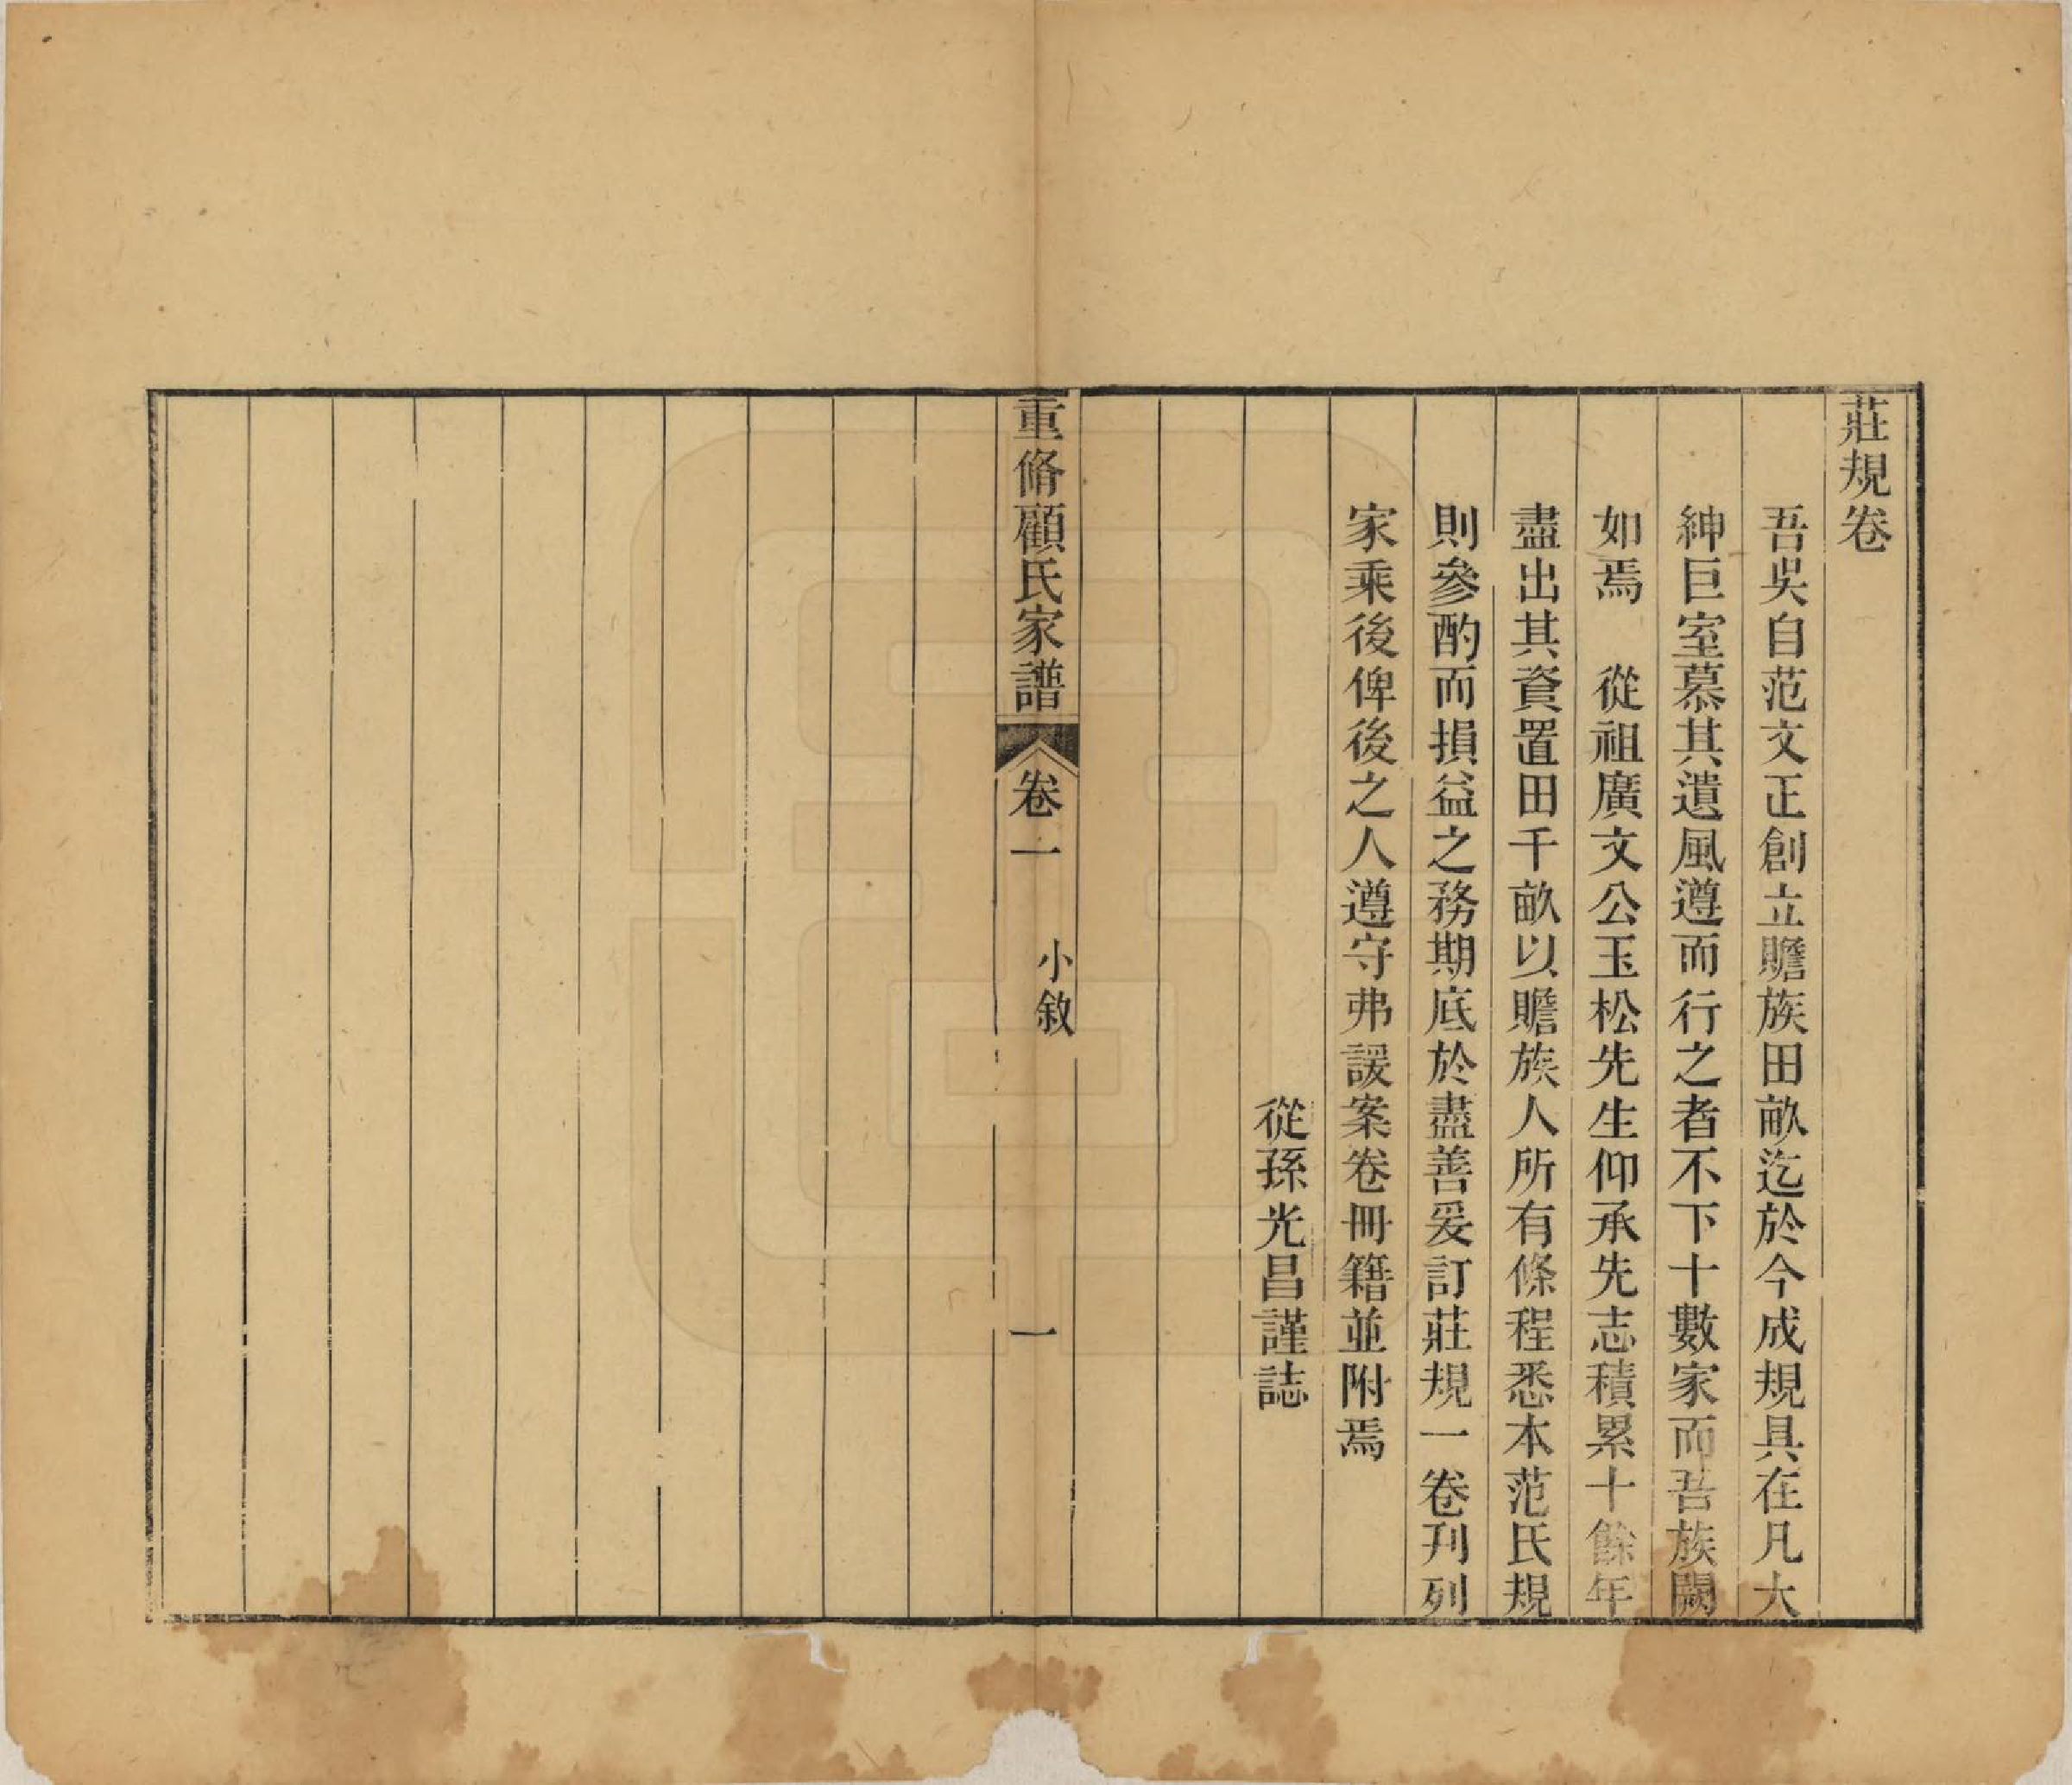 莊規卷
吾吳自范文正創立贍族田畝迄於今成規具在凡大
紳巨室慕其遺風遵而行之者不下十數家而吾族闕
如焉　從祖廣文公玉松先生仰承先志積累十餘年
盡出其資置田千畝以贍族人所有條程悉本范氏規
則參酌而損益之務期底於盡善爰訂莊規一卷刋列
家乘後俾後之人遵守弗諼案卷冊籍並附焉
從孫光昌謹誌
重脩顧氏家譜　卷一　小敘　一